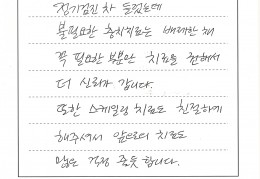 정기검진 차 들렀는데
불필요한 충치치료는 배제한 채
꼭 필요한 부분만 치료를 권해서
더 신뢰가 갑니다.
또한 스케일링 치료도 친절하게
해주셔서 앞으로의 치료도
많은 걱정 줄듯 합니다.